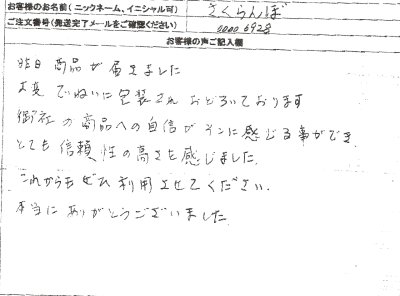 お客様のお名前(ニックネーム、イニシャル可) さくらんぼ
ご注文番号(発送完了メールをご確認ください) 0000692号
お客様の声ご記入欄
昨日 商品が届きました
大変 ていねいに包装され おどろいております
御社の商品への自信がそこに感じる事ができ
とても信頼性の高さを感じました.
これからもぜひ利用させてください.
本当にありがとうございました.